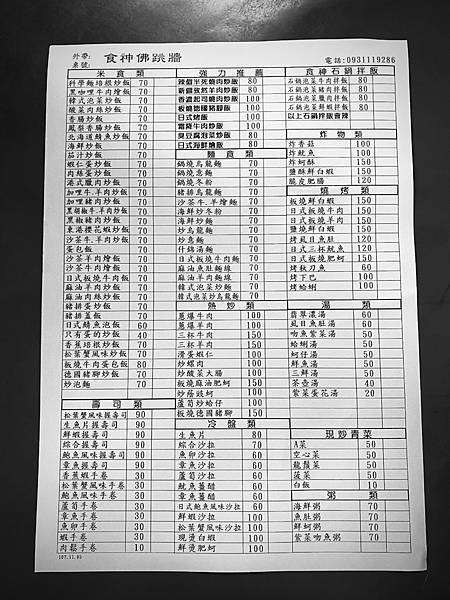 外帶:
桌號:
食神佛跳牆
電話:0931119286
米食類
科學麵培根炒飯 70
黑咖哩牛肉燴飯 70
韓式泡菜炒飯 70
酸菜肉絲炒飯 70
香腸炒飯 70
鳳梨香腸炒飯 70
北海道鯖魚炒飯 70
海鮮炒飯 70
茄汁炒飯 70
蝦仁蛋炒飯 70
肉絲蛋炒飯 70
港式臘肉炒飯 70
加哩牛.羊肉炒飯 70
加哩豬肉炒飯 70
黑胡椒牛.羊肉炒飯 70
黑椒豬肉炒飯 70
東港櫻花蝦炒飯 70
沙茶牛.羊肉炒飯 70
蛋包飯 70
沙茶羊肉燴飯 70
沙茶牛肉燴飯 70
日式板燒牛肉炒飯 70
麻油羊肉炒飯 70
麻油肉絲炒飯 70
豬排蛋炒飯 70
豬排蓋飯 70
日式鯖魚泡飯 60
只有蛋的炒飯 40
香蕉培根炒飯 70
松葉蟹風味炒飯 70
板燒牛肉蛋包飯 80
德國豬腳炒飯 70
炒泡麵 70
壽司類
松葉蟹風味握壽司 90
生魚片握壽司 90
鮮蝦握壽司 90
鮑魚風味握壽司 90
章魚握壽司 90
香蕉蝦手卷 30
松葉蟹風味手卷 30
鮑魚風味手卷 30
蘆筍手卷 30
章魚手卷 30
魚卵手卷 30
蝦手卷 30
肉鬆手卷 10
107.11.05
強力推薦
辣個半死燒肉炒飯 80
新疆孜然羊肉炒飯 80
香濃起司燒肉炒飯 70
板燒脆燻豬肥腸飯 70
日式烤飯 70
霜降牛肉炒飯 70
臭豆腐泡菜炒飯 80
日式海鮮燴飯 80
麵食類
鍋燒烏龍麵 70
鍋燒意麵 70
鍋燒冬粉 70
豬排烏龍麵 70
沙茶牛.羊燴麵 70
海鮮炒冬粉 70
海鮮炒麵 70
炒烏龍麵 70
炒意麵 70
什錦湯麵 70
日式板燒牛肉麵 70
麻油魚肚麵線 70
麻油羊肉麵線 70
韓式泡菜炒麵 70
韓式泡菜炒烏龍麵 70
熱炒
蔥爆牛肉 100
蔥爆羊肉 100
三杯牛肉 150
三杯羊肉 150
滑蛋蝦仁 100
炒螺肉 100
炒酸菜大腸 100
板燒麻油肥蚵 150
炒蔭豉蚵 100
蘆筍炒蛤仔 100
板燒德國豬腳 150
冷盤類
生魚片 80
綜合沙拉 70
魚卵沙拉 60
章魚沙拉 60
蘆筍沙拉 60
魷魚薑醋 60
章魚薑醋 60
日式鮑魚風味沙拉 60
鮮蝦沙拉 100
松葉蟹風味沙拉 100
現燙白蝦 100
鮮燙肥蚵 100
食神石鍋拌飯
石鍋泡菜牛肉拌飯 80
石鍋泡菜豬肉拌飯 80
石鍋泡菜肥腸拌飯 80
石鍋泡菜鮮蝦拌飯 80
以上石鍋拌飯會辣
炸物類
炸香菇 100
炸魷魚 100
炸蚵酥 150
鹽酥鮮白蝦 150
脆皮肥腸 120
燒烤類
板燒鮮白蝦 150
日式板燒牛肉 150
日式板燒羊肉 150
鹽燒鮮白蝦 150
烤虱目魚肚 120
日式三杯魷魚 120
日式板燒肥蚵 150
烤秋刀魚 60
烤下巴 100
烤蛤蜊 100
湯類
翡翠濃湯 60
虱目魚肚湯 70
吻魚紫菜湯 50
蛤蜊湯 50
蚵仔湯 50
鮮魚湯 50
三鮮湯 50
茶壺湯 40
紫菜蛋花湯 20
現炒青菜
A菜 50
空心菜 50
龍鬚菜 50
菠菜 50
白飯 10
粥類
海鮮粥 70
魚肚粥 70
鮮蚵粥 70
紫菜吻魚粥 70